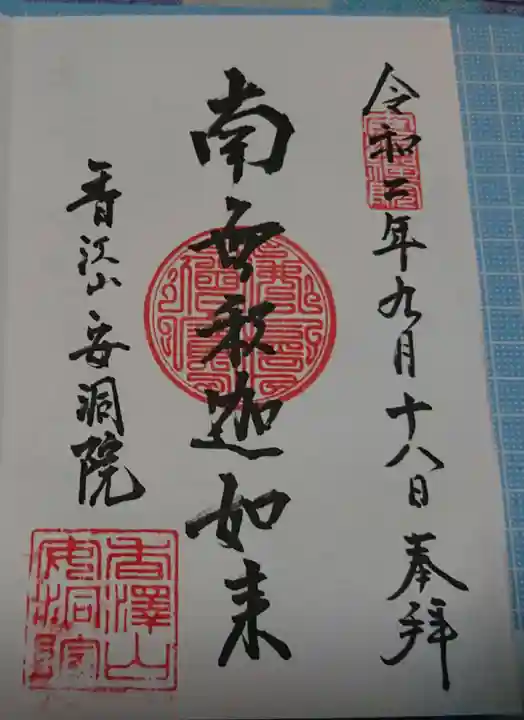 令和二年九月十八日 奉拝
南無釈迦如来
香沢山 安洞院
香澤山安洞院